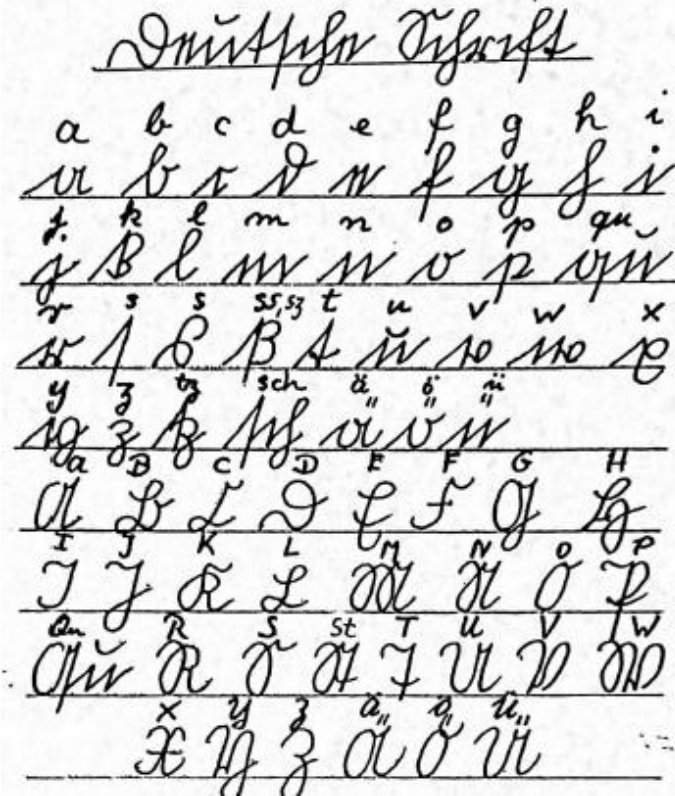 Deutsche Schrift
a b c d e f g h i
a b c d e f g h i
j k l m n o p qu
j k l m n o p qu
r s s ss,sz t u v w x
r ſ s ß t u v w x
y z tz sch ä ö ü
y z tz ſch ä ö ü
A B C D E F G H
A B C D E F G H
I J K L M N O P
I J K L M N O P
Qu R S St T U V W
Qu R S St T U V W
X Y Z Ä Ö Ü
X Y Z Ä Ö Ü